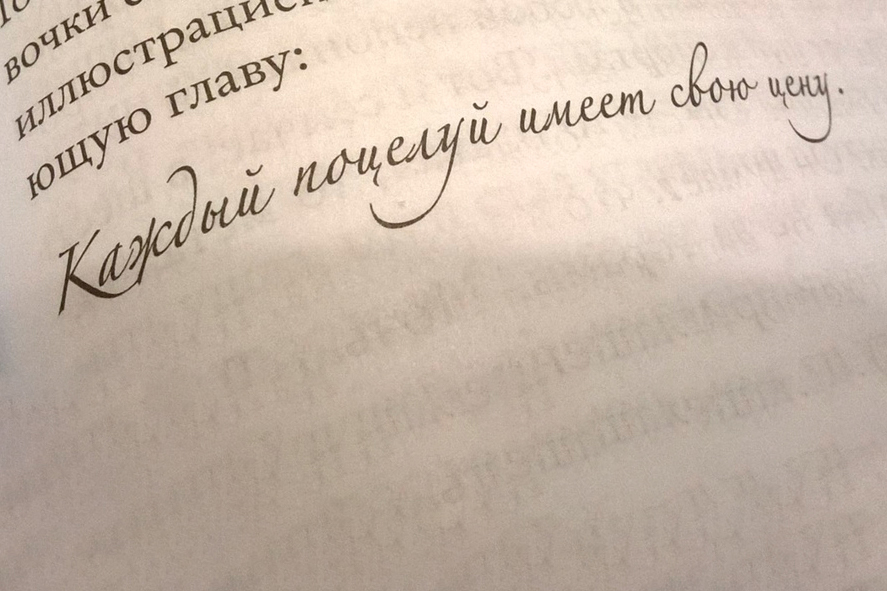 вочки
иллюстрацией
ющую главу:
Каждый поцелуй имеет свою цену.